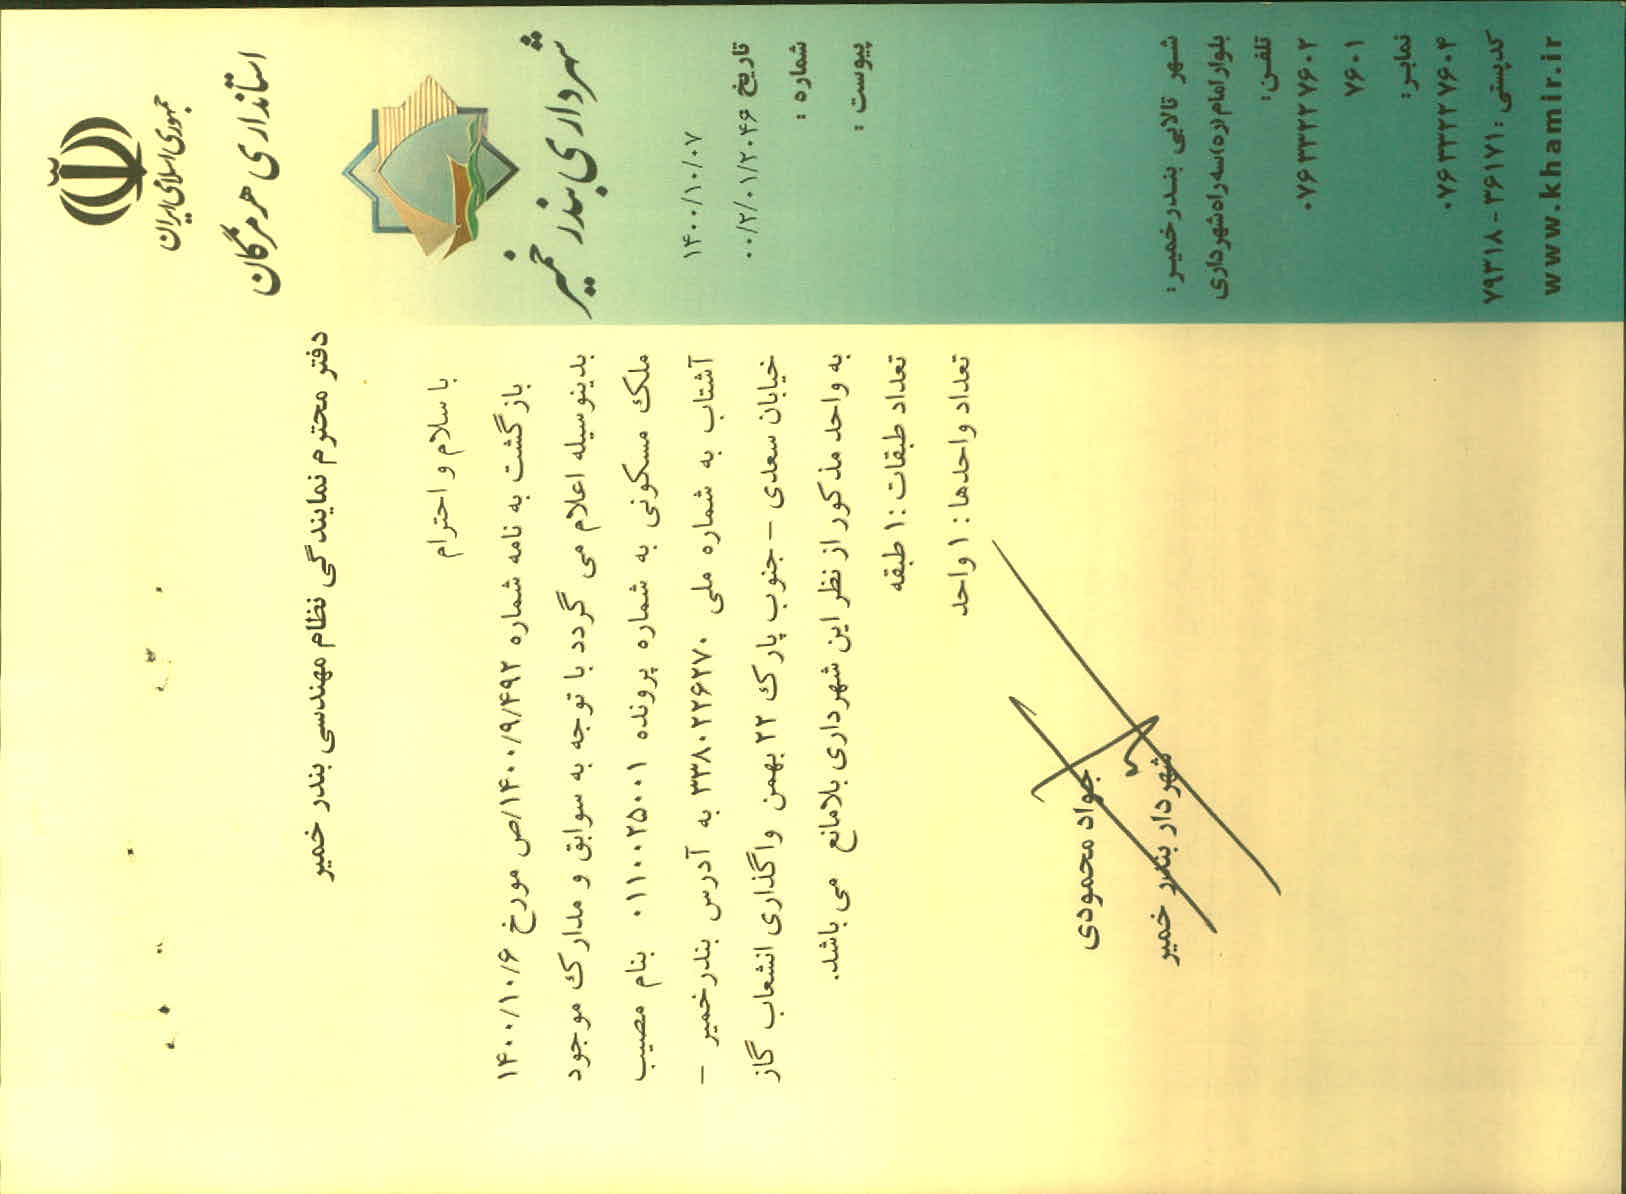 جمهوری اسلامی ایران
استانداری هرمزگان
شهرداری بندر خمیر
۱۴۰۰/۱۰/۰۷
تاریخ ۰۰/۲/۰۱/۲۰۴۶
شماره :
پیوست :
دفتر محترم نمایندگی نظام مهندسی بندر خمیر
با سلام و احترام
بازگشت به نامه شماره ۱۴۰۰/۹/۴۹۲/ص مورخ ۱۴۰۰/۱۰/۶
بدینوسیله اعلام می گردد با توجه به سوابق و مدارک موجود
ملک مسکونی به شماره پرونده ۰۱۱۰۰۲۵۰۰۱ بنام مصیب
آشتاب به شماره ملی ۳۳۸۰۲۲۶۲۷۰ به آدرس بندرخمیر –
خیابان سعدی – جنوب پارک ۲۲ بهمن واگذاری انشعاب گاز
به واحد مذکور از نظر این شهرداری بلامانع می باشد.
تعداد طبقات :۱ طبقه
تعداد واحدها : ۱ واحد
جواد محمودی
شهردار بندر خمیر
شهر تالابی بندرخمیر:
بلوار امام (ره) سه راه شهرداری
تلفن:
۰۷۶۳۳۲۲۷۶۰۲
۷۶۰۱
نمابر:
۰۷۶۳۳۲۲۷۶۰۴
کدپستی: ۳۶۱۷۱-۷۹۳۱۸
www.khamir.ir